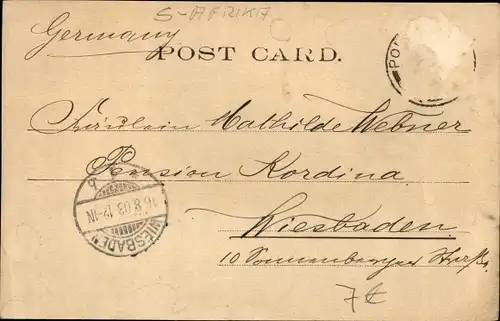 S-AFRIKA
Germany
POST CARD.
PO
Fräulein Mathilde Webner
Pension Kordina
Wiesbaden
10 Sonnenberger Straße
WIESBADEN
16.8.03.12-1N
7€